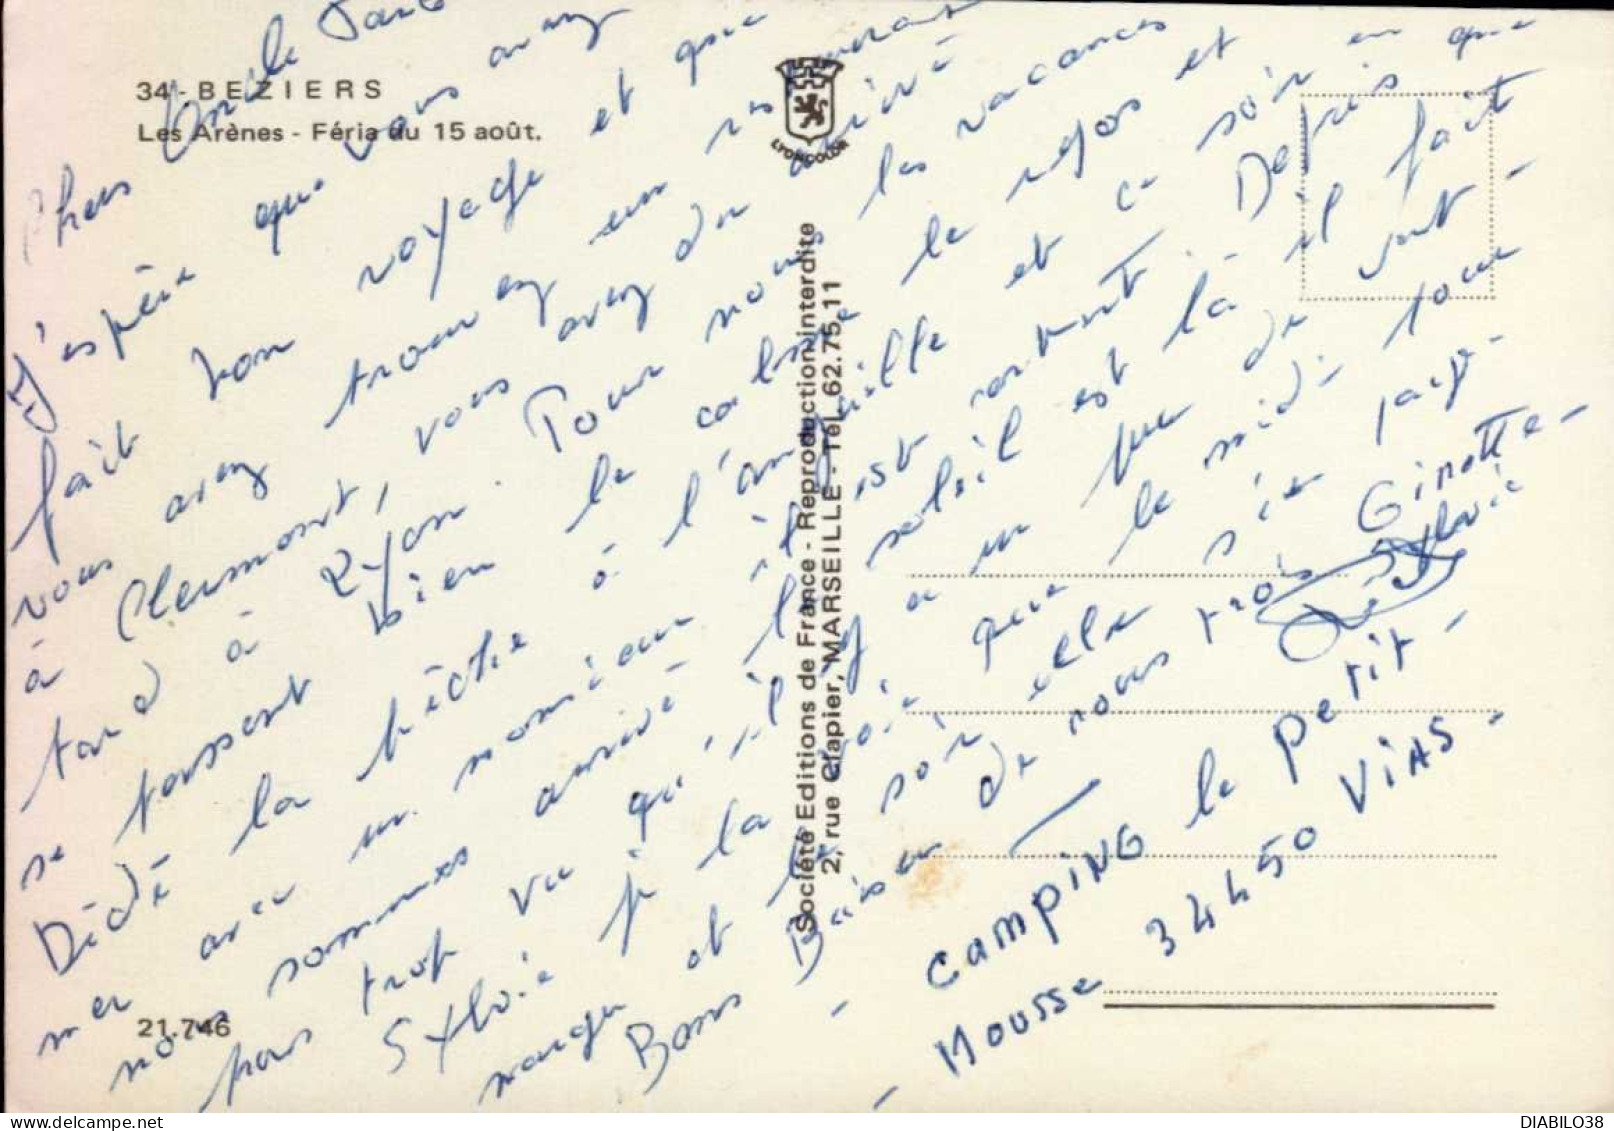 34 - BEZIERS
Les Arènes - Féria du 15 août.
LYONCOLOR
Chers Oncle
J'espère que vous avez
fait bon voyage et que
vous avez trouvez en
à Clermont, vous avez du arrivé
tard à Lyon. Pour nous les vacances
se passent bien le calme le repos et
Dédé la pêche à l'anguille et ce soir en
mer avec un monsieur il est content. Depuis que
nous sommes arrivé le soleil est là il fait
pas trop vu qu'il y a un peu de vent -
Sylvie j la voie que le midi pour
manger et le soir elle s'en paye -
Bons Baiser de nous trois Ginette -
Sylvie
- CAMPING le Petit -
- Mousse 34450 ViAS -
Société Editions de France - Reproduction interdite
2, rue Clapier, MARSEILLE - Tél. 62.75.11
21.746
DIABILO38